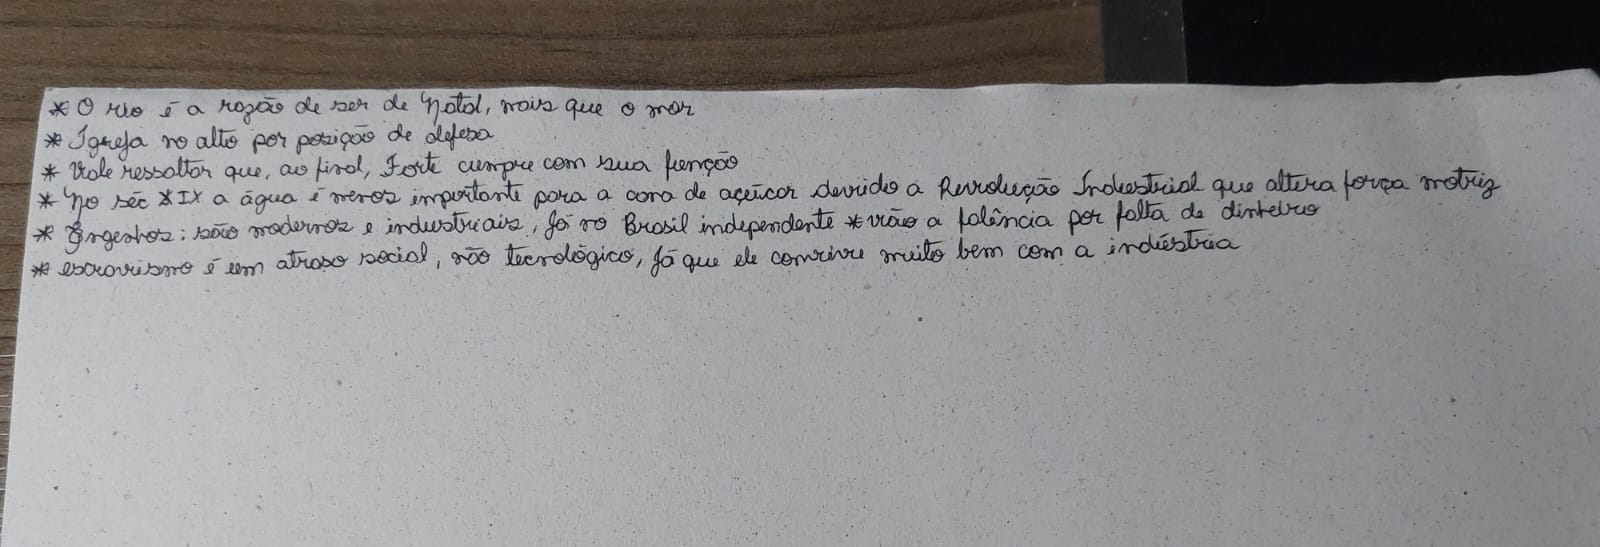 * O rio é a razão de ser de Natal, mais que o mar
* Igreja no alto por posição de defesa
* Vale ressaltar que, ao final, Forte cumpre com sua função
* No séc XIX a água é menos importante para a cana de açúcar devido a Revolução Industrial que altera força motriz
* Engenhos: são modernos e industriais, já no Brasil independente * vão a falência por falta de dinheiro
* escravismo é um atraso social, não tecnológico, já que ele convive muito bem com a indústria